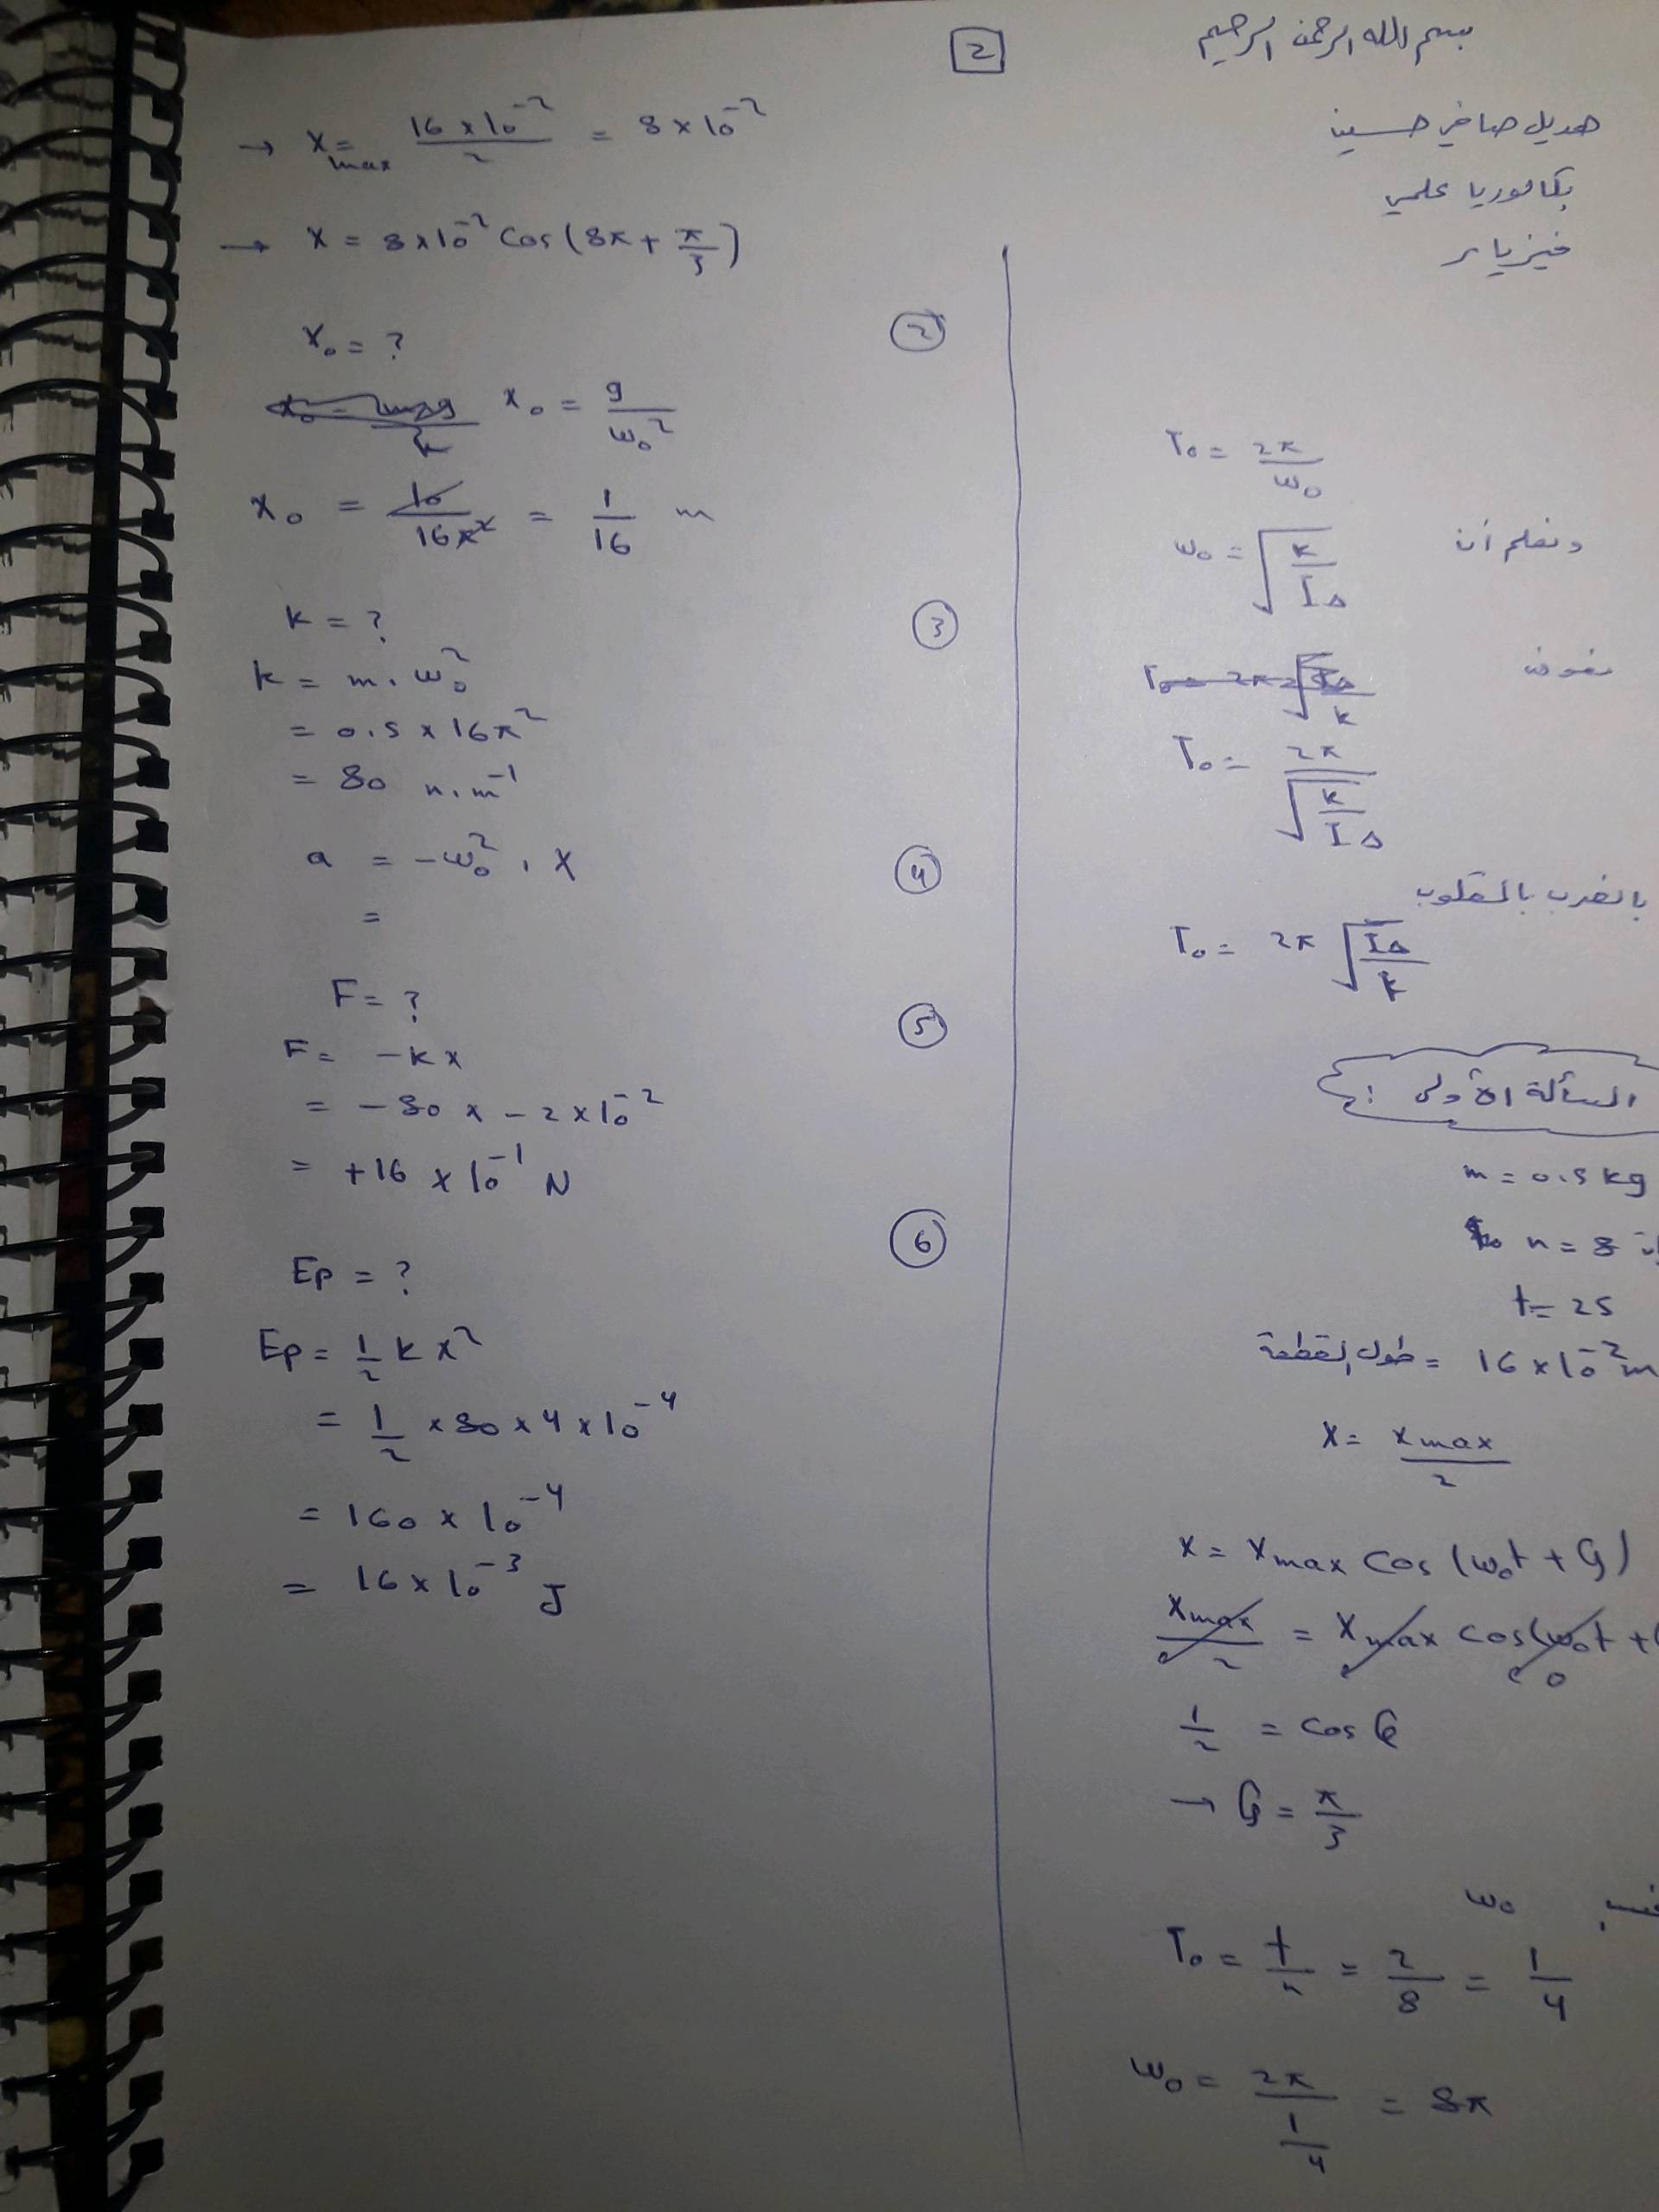 بسم الله الرحمن الرحيم
هديل صافي حسين
بكالوريا علمي
فيزياء
T₀ = 2π/ω₀
ونعلم أن ω₀ = √(k/I∆)
نعوض
T₀ = 2π/√(k/I∆)
بالضرب بالمقلوب
T₀ = 2π √(I∆/k)
المسألة الأولى :
m = 0.5 kg
n = 8
t = 2s
طول القطعة = 16 × 10⁻² m
x = xmax/2
x = xmax cos (ω₀t + φ)
xmax/2 = xmax cos(ω₀t +
0
1/2 = cos φ
→ φ = π/3
ω₀
T₀ = t/n = 2/8 = 1/4
ω₀ = 2π/(1/4) = 8π
2
→ xmax = 16 × 10⁻²/2 = 8 × 10⁻²
→ x = 8 × 10⁻² cos (8π + π/3)
②
x₀ = ?
x₀ = g/ω₀²
x₀ = 10/16π² = 1/16 m
③
k = ?
k = m . ω₀²
= 0.5 × 16π²
= 80 n.m⁻¹
④
a = -ω₀² . x
=
⑤
F = ?
F = -k x
= -80 × -2 × 10⁻²
= +16 × 10⁻¹ N
⑥
Ep = ?
Ep = 1/2 k x²
= 1/2 × 80 × 4 × 10⁻⁴
= 160 × 10⁻⁴
= 16 × 10⁻³ J